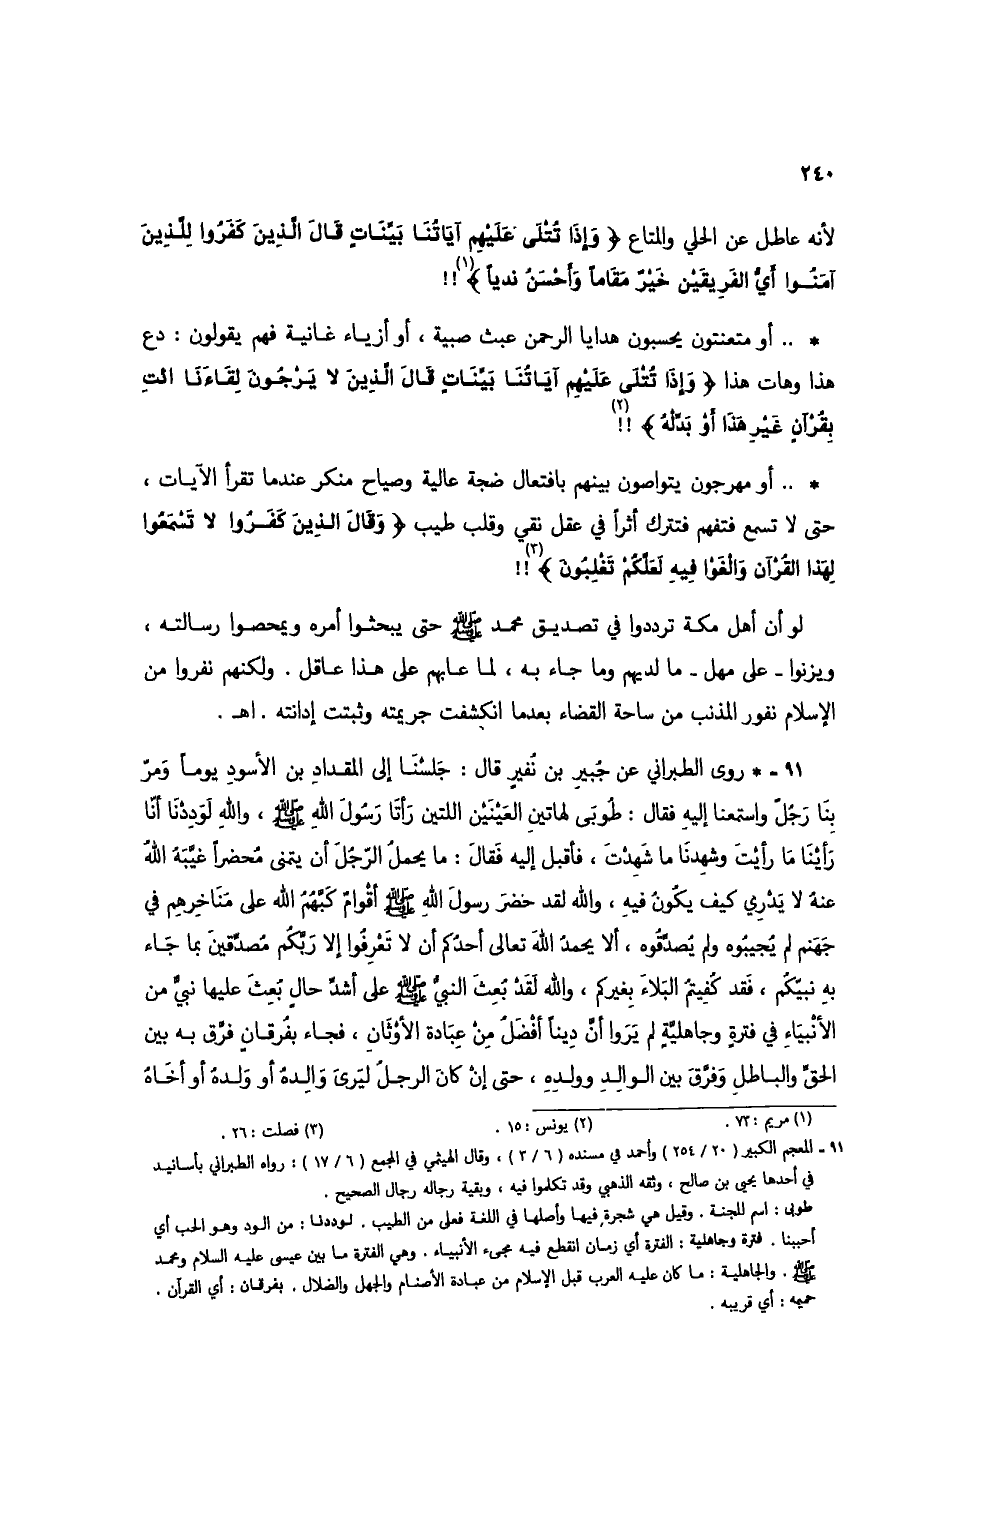 ٢٤٠
لأنه عاطل عن الحلي والمتاع ﴿ وَإِذَا تُتْلَى عَلَيْهِم آيَاتُنَا بَيِّنَاتٍ قَالَ الَّذِينَ كَفَرُوا لِلَّذِينَ
آمَنُوا أَيُّ الفَرِيقَيْن خَيْرٌ مَقَاماً وَأَحْسَنُ ندياً ﴾(١)!!
* .. أو متعنتون يحسبون هدايا الرحمن عبث صبية ، أو أزياء غانية فهم يقولون : دع
هذا وهات هذا ﴿ وَإِذَا تُتْلَى عَلَيْهِم آيَاتُنَا بَيِّنَاتٍ قَالَ الَّذِينَ لا يَرْجُونَ لِقَاءَنَا ائتِ
بِقُرْآنٍ غَيْرِ هَذَا أَوْ بَدِّلْهُ ﴾ (٢)!!
* .. أو مهرجون يتواصون بينهم بافتعال ضجة عالية وصياح منكر عندما تقرأ الآيات ،
حتى لا تسمع فتفهم فتترك أثراً في عقل نقي وقلب طيب ﴿ وَقَالَ الذِينَ كَفَرُوا لا تَسْمَعُوا
لِهَذا القُرْآن وَالْغَوْا فِيهِ لَعَلَّكُمْ تَغْلِبُونَ ﴾(٣)!!
لو أن أهل مكة ترددوا في تصديق محمد ﷺ حتى يبحثوا أمره ويمحصوا رسالته ،
ويزنوا ـ على مهل ـ ما لديهم وما جاء به ، لما عابهم على هذا عاقل . ولكنهم نفروا من
الإسلام نفور المذنب من ساحة القضاء بعدما انكشفت جريمته وثبتت إدانته . اهـ .
٩١ ـ * روى الطبراني عن جُبيرِ بن نُفيرٍ قال : جَلسْنَا إلى المقدادِ بن الأسودِ يوماً وَمرّ
بِنَا رَجُلٌ واستمعنا إليهِ فقال : طُوبَى لهاتين العَيْنَيْن اللتين رَأتَا رَسُولَ اللهِ ﷺ ، واللهِ لَوَدِدْنَا أنّا
رَأيْنَا مَا رأيْتَ وشهِدنَا ما شَهِدْتَ ، فأقبل إليه فَقالَ : ما يحملُ الرّجُلَ أن يتمنى مُحضراً غيَّبَهُ اللهُ
عنهُ لا يَدْرِي كيف يكُونُ فيهِ ، والله لقد حضرَ رسولَ اللهِ ﷺ أقْوامٌ كَبَّهُمُ الله على مَنَاخِرِهِم في
جَهَنم لم يُجيبُوه ولم يُصدِّقُوه ، ألا يحمدُ اللهَ تعالى أحدُكم أن لا تَعْرِفُوا إلا رَبَّكُم مُصدِّقينَ بما جَاء
بهِ نبيّكُم ، فَقد كُفِيتمُ البَلاءَ بغيركم ، والله لَقَدْ بُعِثَ النبيُّ ﷺ على أشدِّ حالٍ بُعِثَ عليها نبيٌّ من
الأنْبيَاءِ في فترةٍ وجاهليَّةٍ لم يَرَوا أنَّ دِيناً أفْضَلُ مِنْ عِبَادة الأوْثَان ، فجاء بفُرقانٍ فرَّق به بين
الحقِّ والباطلِ وَفرَّقَ بين الوالِدِ وولدِهِ ، حتى إنْ كانَ الرجلُ ليَرىَ وَالِدهُ أو وَلدهُ أو أخَاهُ
(١) مريم : ٧٣ . (٢) يونس : ١٥ . (٣) فصلت : ٢٦ .
٩١ ـ المعجم الكبير ( ٢٠ / ٢٥٤ ) وأحمد في مسنده ( ٦ / ٣ ) ، وقال الهيثمي في المجمع ( ٦ / ١٧ ) : رواه الطبراني بأسانيد
في أحدها يحيى بن صالح ، وثقه الذهبي وقد تكلموا فيه ، وبقية رجاله رجال الصحيح .
طوبى : اسم للجنة . وقيل هي شجرة فيها وأصلها في اللغة فعلى من الطيب . لوددنا : من الود وهو الحب أي
أحببنا . فترة وجاهلية : الفترة أي زمان انقطع فيه مجيء الأنبياء . وهي الفترة ما بين عيسى عليه السلام ومحمد
ﷺ . والجاهلية : ما كان عليه العرب قبل الإسلام من عبادة الأصنام والجهل والضلال . بفرقان : أي القرآن .
حميمه : أي قريبه .